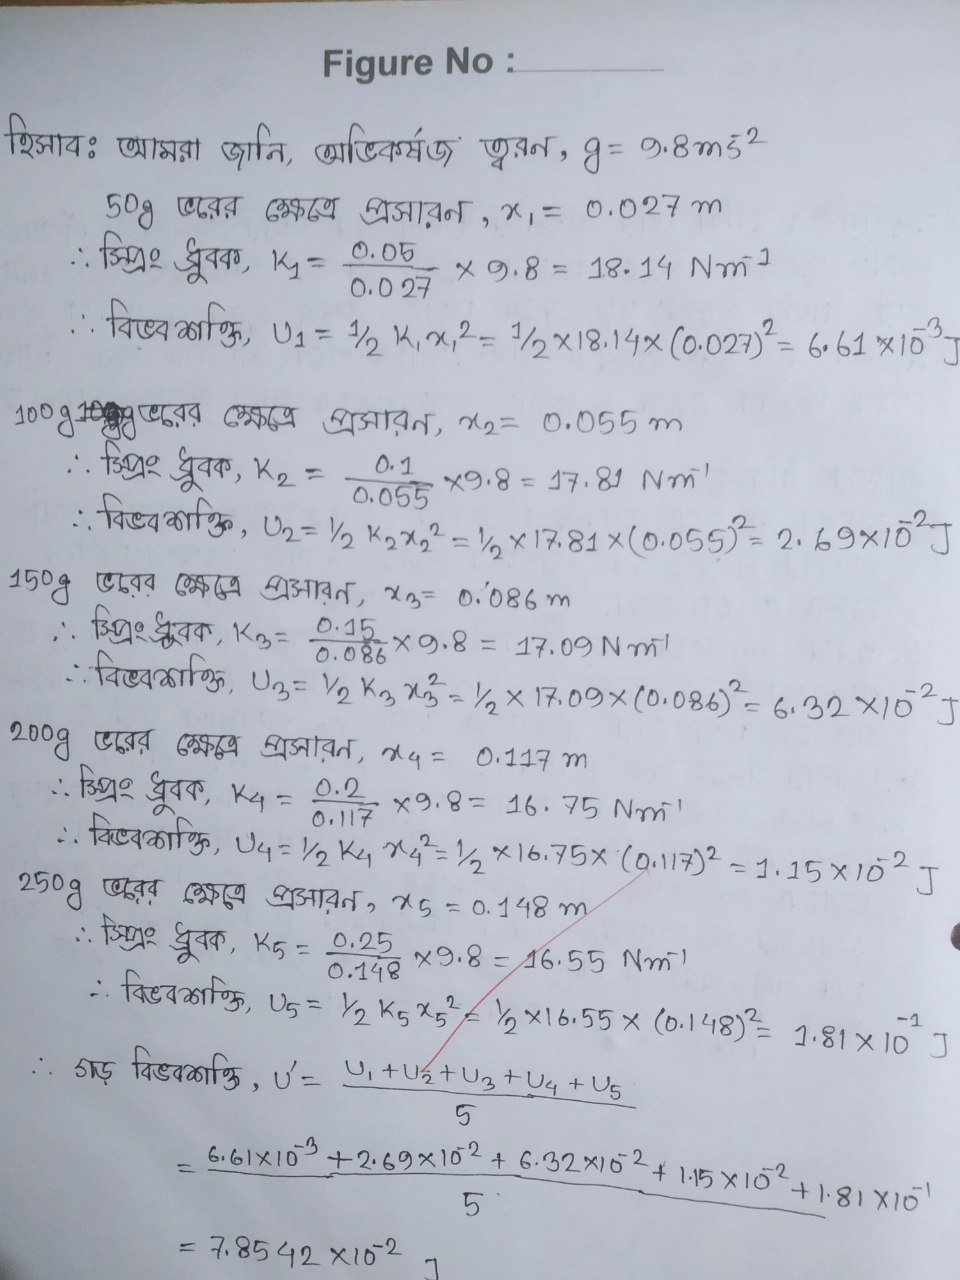 Figure No :
হিসাবঃ আমরা জানি, অভিকর্ষজ ত্বরন, g = 9.8ms⁻²
50g ভরের ক্ষেত্রে প্রসারন, x₁ = 0.027 m
∴ স্প্রিং ধ্রুবক, K₁ = 0.05/0.027 × 9.8 = 18.14 Nm⁻¹
∴ বিভবশক্তি, U₁ = ½ K₁x₁² = ½×18.14×(0.027)² = 6.61×10⁻³ J
100g ভরের ক্ষেত্রে প্রসারন, x₂ = 0.055 m
∴ স্প্রিং ধ্রুবক, K₂ = 0.1/0.055 ×9.8 = 17.81 Nm⁻¹
∴ বিভবশক্তি, U₂ = ½ K₂x₂² = ½×17.81×(0.055)² = 2.69×10⁻² J
150g ভরের ক্ষেত্রে প্রসারন, x₃ = 0.086 m
∴ স্প্রিং ধ্রুবক, K₃ = 0.15/0.086 × 9.8 = 17.09 Nm⁻¹
∴ বিভবশক্তি, U₃ = ½ K₃ x₃² = ½ × 17.09×(0.086)² = 6.32×10⁻² J
200g ভরের ক্ষেত্রে প্রসারন, x₄ = 0.117 m
∴ স্প্রিং ধ্রুবক, K₄ = 0.2/0.117 ×9.8 = 16.75 Nm⁻¹
∴ বিভবশক্তি, U₄ = ½ K₄ x₄² = ½ ×16.75× (0.117)² = 1.15×10⁻² J
250g ভরের ক্ষেত্রে প্রসারন, x₅ = 0.148 m
∴ স্প্রিং ধ্রুবক, K₅ = 0.25/0.148 ×9.8 = 16.55 Nm⁻¹
∴ বিভবশক্তি, U₅ = ½ K₅x₅² = ½×16.55 × (0.148)² = 1.81×10⁻¹ J
∴ গড় বিভবশক্তি, U′ = U₁+U₂+U₃+U₄+U₅/5
= 6.61×10⁻³ + 2.69×10⁻² + 6.32×10⁻² + 1.15×10⁻² + 1.81×10⁻¹/5
= 7.8542 ×10⁻² J